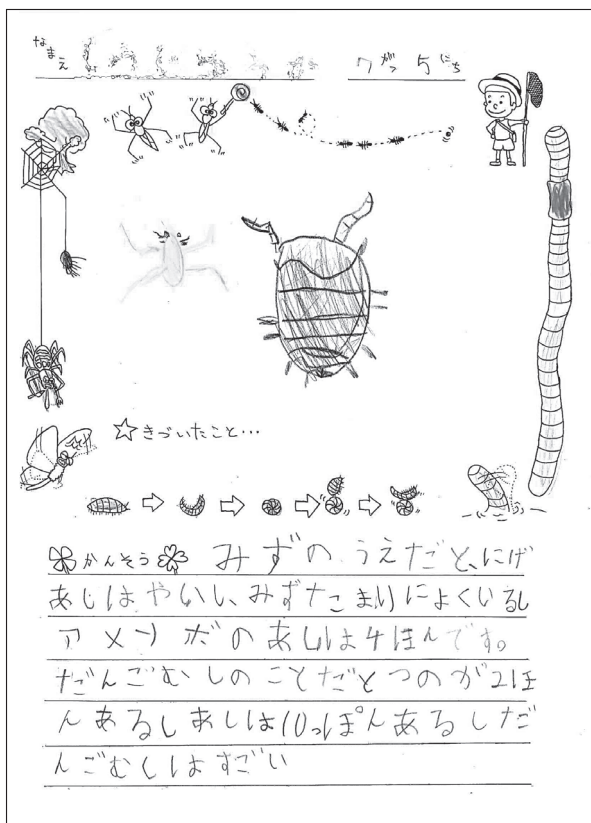 なまえ
7がつ5にち
☆きづいたこと…
かんそう みずの うえだと、にげ
あしはやいし、みずたこまりによくいるし
アメンボのあしは4ほんです。
だんごむしのことだとつのが2ほ
んあるしあしは10っぽんあるしだ
んごむしはすごい